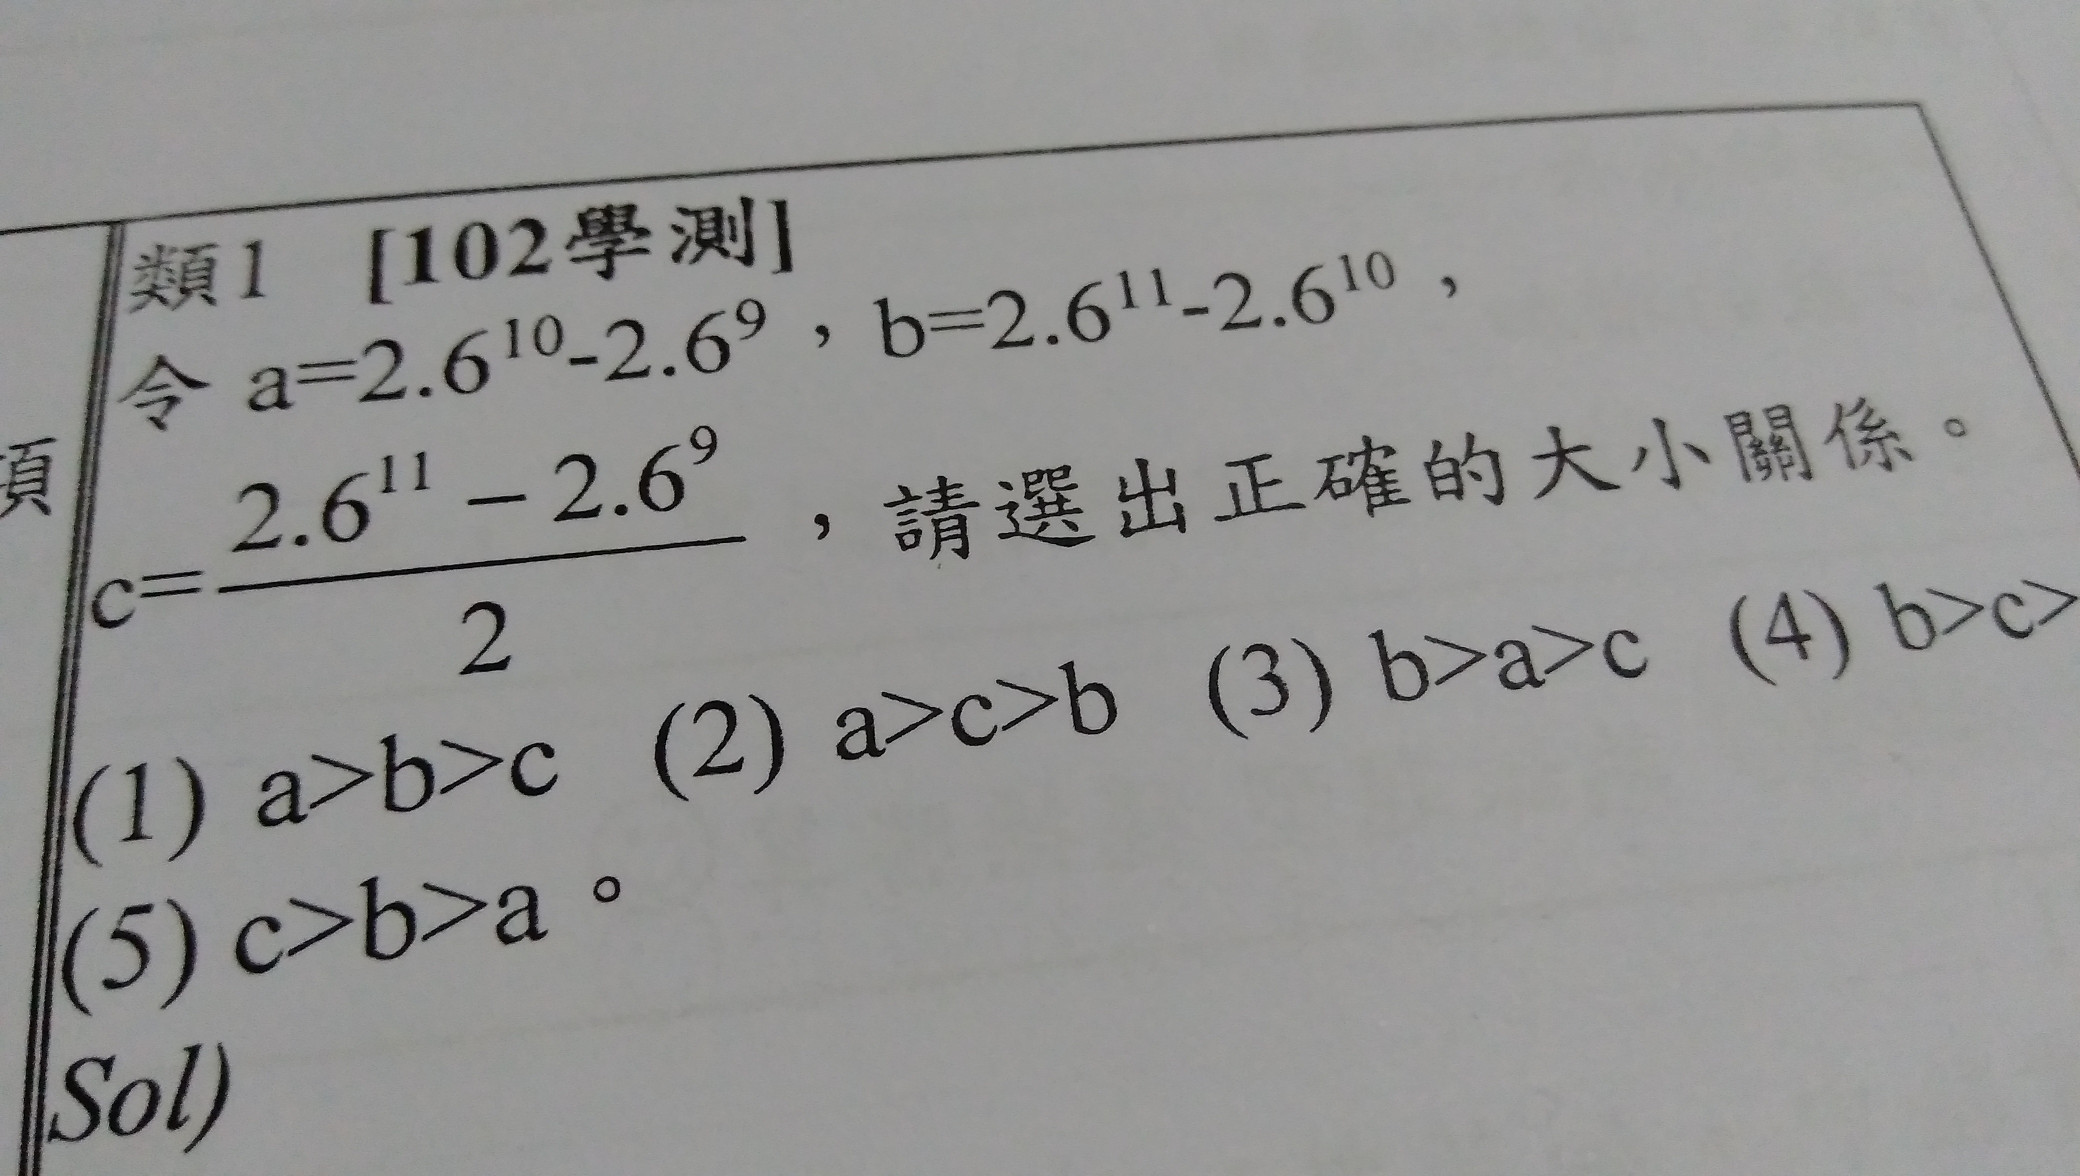 類1 [102學測]
令 a=2.6¹⁰-2.6⁹，b=2.6¹¹-2.6¹⁰，
項
c=(2.6¹¹ − 2.6⁹)/2，請選出正確的大小關係。
(1) a>b>c (2) a>c>b (3) b>a>c (4) b>c>
(5) c>b>a。
Sol)